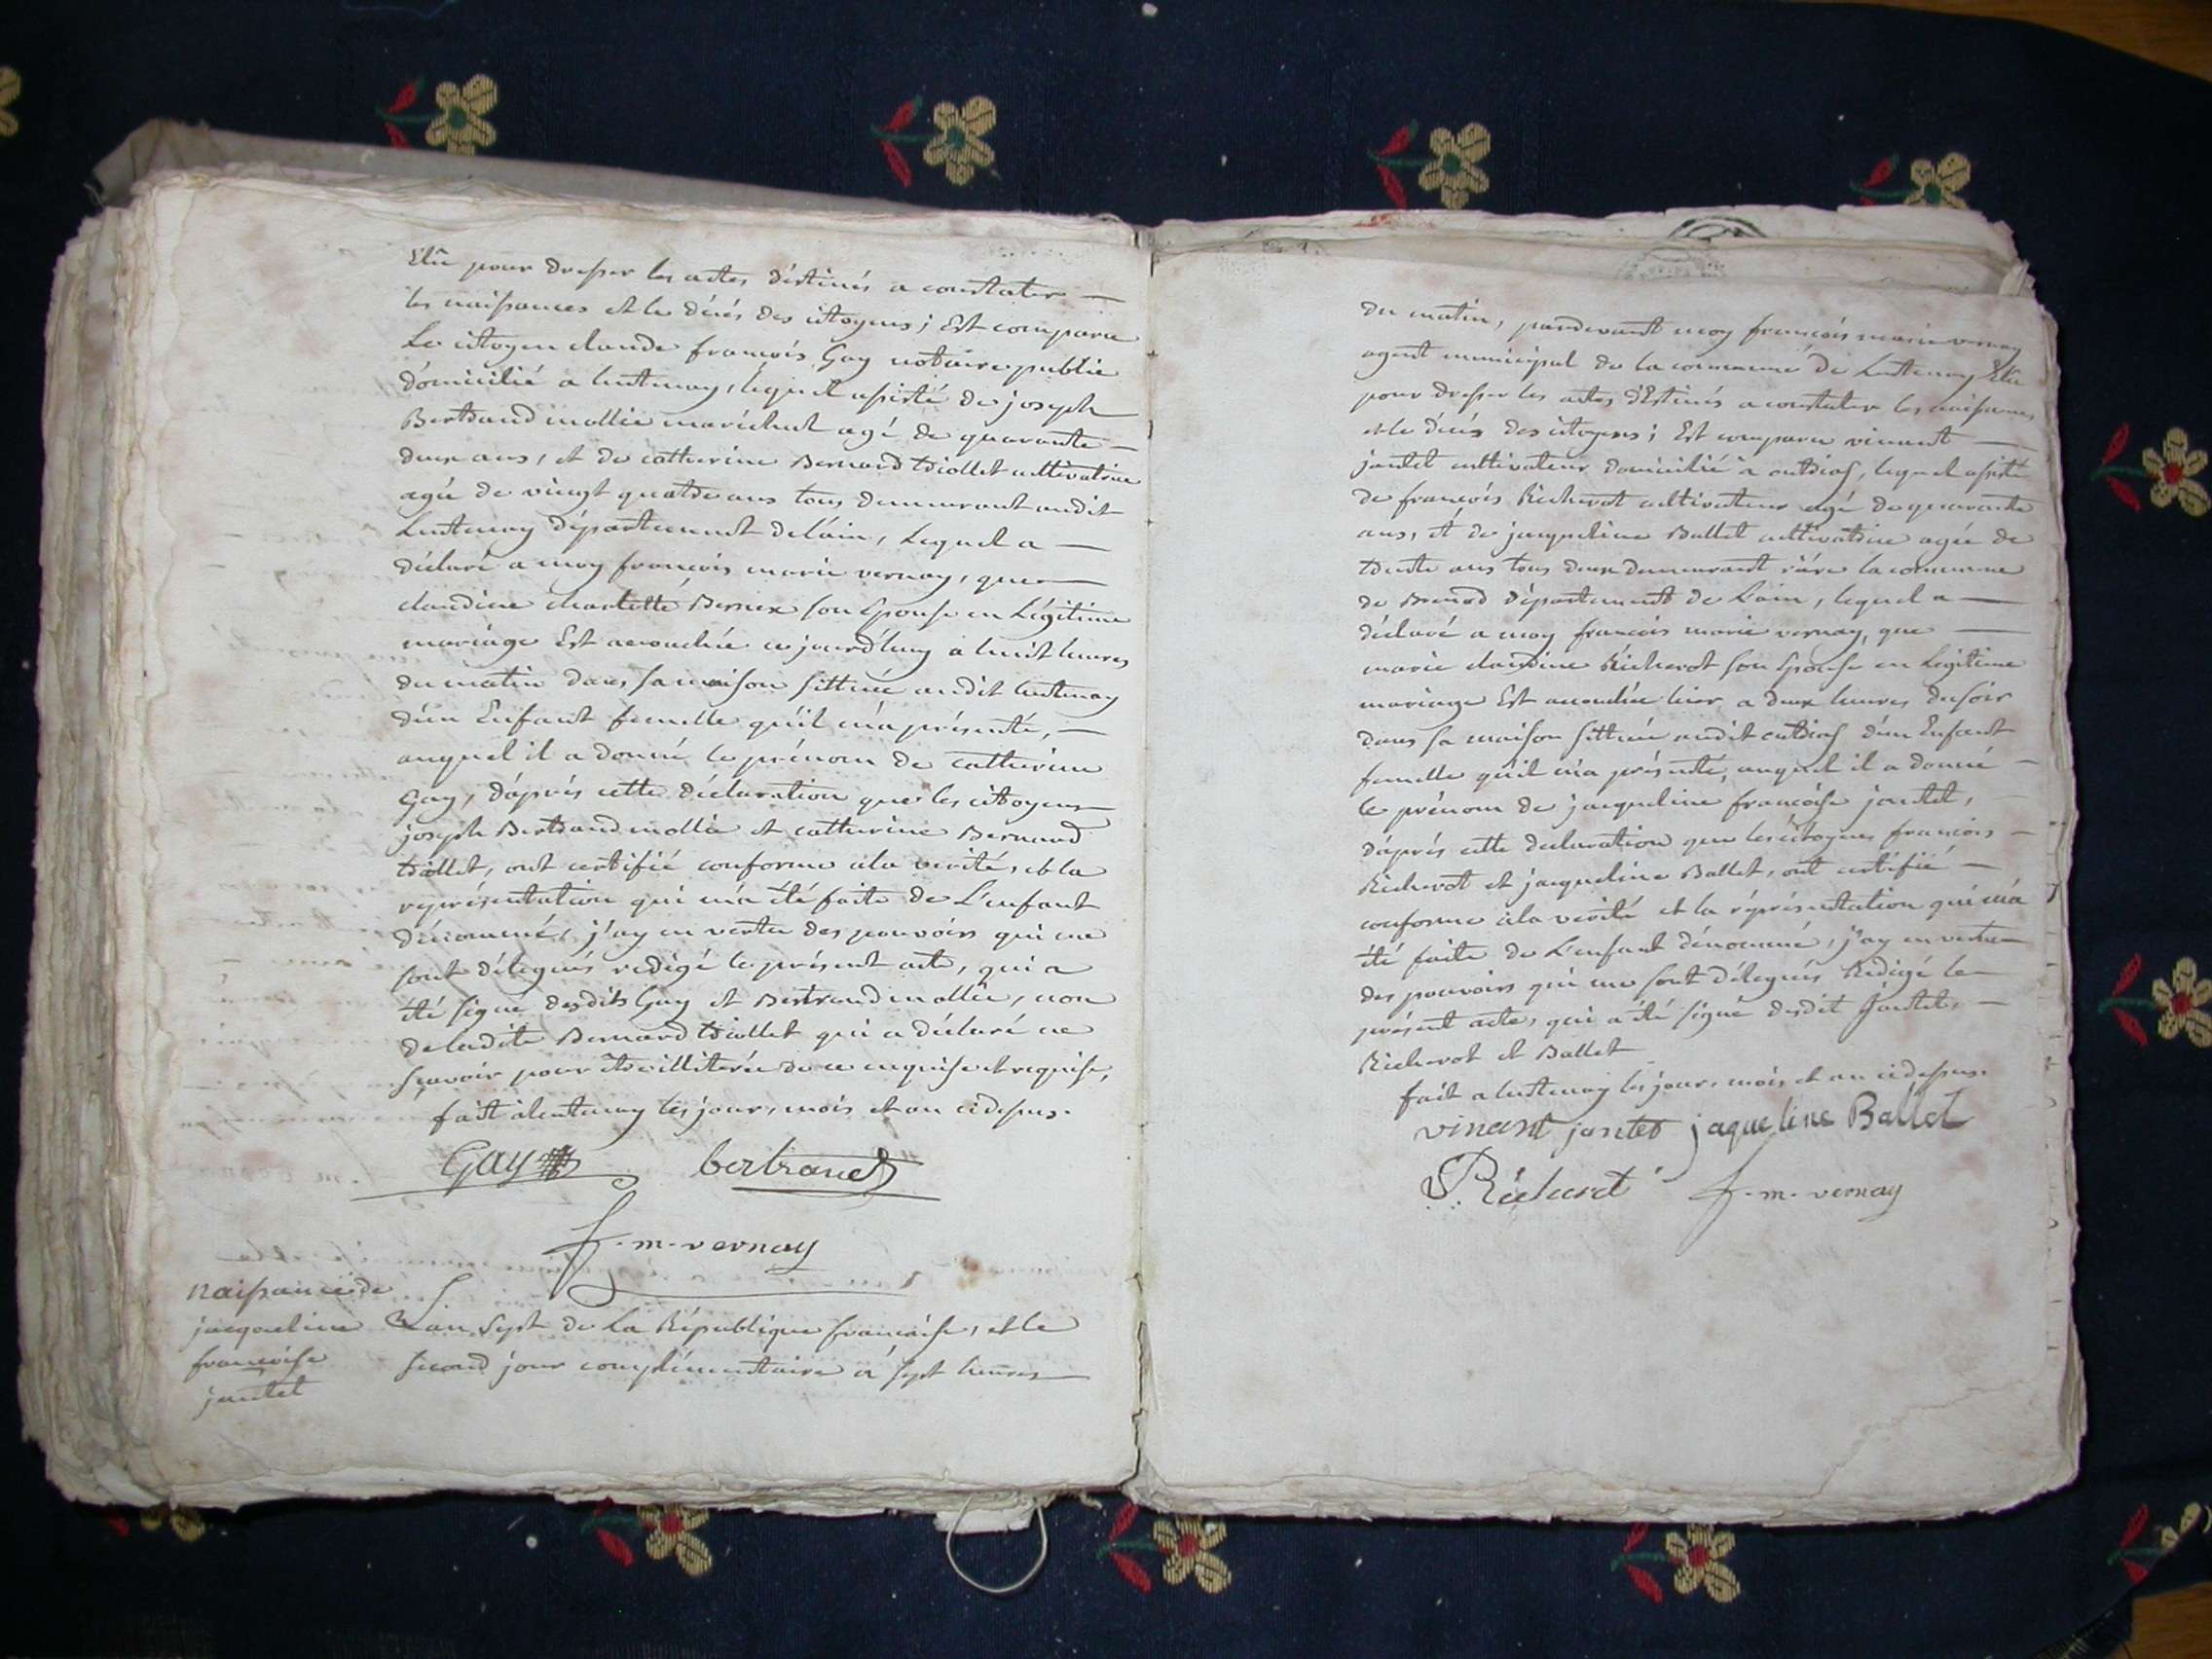 Elû pour dresser les actes déstinés a constater
les naissances et le décés des citoyens; Est comparu
Le citoyen claude françois Gay notaire public
domicilié a lentenay, lequel assisté de joseph
Bertrand mollie maréchal agé de quarante
deux ans, et de catherine Bernard triollet cultivatrice
agée de vingt quatre ans tous demeurant audit
Lentenay département de l'ain, Lequel a
déclaré a moy francois marie vernay, que
claudine charlotte Bernex son Epouse en Légitime
mariage Est accouchée ce jourd'huy a huit heures
du matin dans sa maison sittuée audit lentenay
d'un Enfant femelle qu'il m'a présenté,
auquel il a donné le prénom de catherine
Gay, d'aprés cette déclaration que les citoyens
joseph Bertrand mollie et catherine Bernard
triollet, ont certifié conforme a la verité, et la
représentation qui m'a été faite de L'enfant
dénommé, j'ay en vertu des pouvoirs qui me
sont délegués redigé le présent acte, qui a
été signé desdits Gay et Bertrand mollie, non
de ladite Bernard triollet qui a déclaré ne
sçavoir pour être illiterée de ce enquise et requise,
fait a lentenay les jour, mois et an ci dessus.
Gay bertrand
f. m. vernay
naissance de
jacqueline
francoise
jantet
L'an sept de La République francaise, et le
second jour complémentaire a sept heures
du matin, pardevant moy francois marie vernay
agent municipal de la commune de Lentenay Elû
pour dresser les actes d'Estinés a constater les naissances
et le décés des citoyens; Est comparu vincent
jantet cultivateur domicilié a outriaz, lequel assisté
de francois Richerot cultivateur agé de quarante
ans, et de jacqueline Ballet cultivatrice agée de
trente ans tous deux demeurant la commune
de Brenod département de Lain, lequel a
déclaré a moy francois marie vernay, que
marie claudine Richerot son Epouse en Légitime
mariage Est accouchée hier a deux heures du soir
dans sa maison sittuée audit outriaz d'un Enfant
femelle qu'il m'a présenté, auquel il a donné
le prénom de jacqueline francoise jantet,
d'aprés cette declaration que les citoyens francois
Richerot et jacqueline Ballet, ont certifié
conforme a la verité et la réprésentation qui m'a
été faite de L'enfant dénommé, j'ay en vertu
des pouvoirs qui me sont délegués Redigé le
présent acte, qui a été signé desdit jantet,
Richerot et Ballet
fait a lentenay les jour, mois et an ci dessus.
vincent jantet jaqueline Ballet
Richerot f. m. vernay